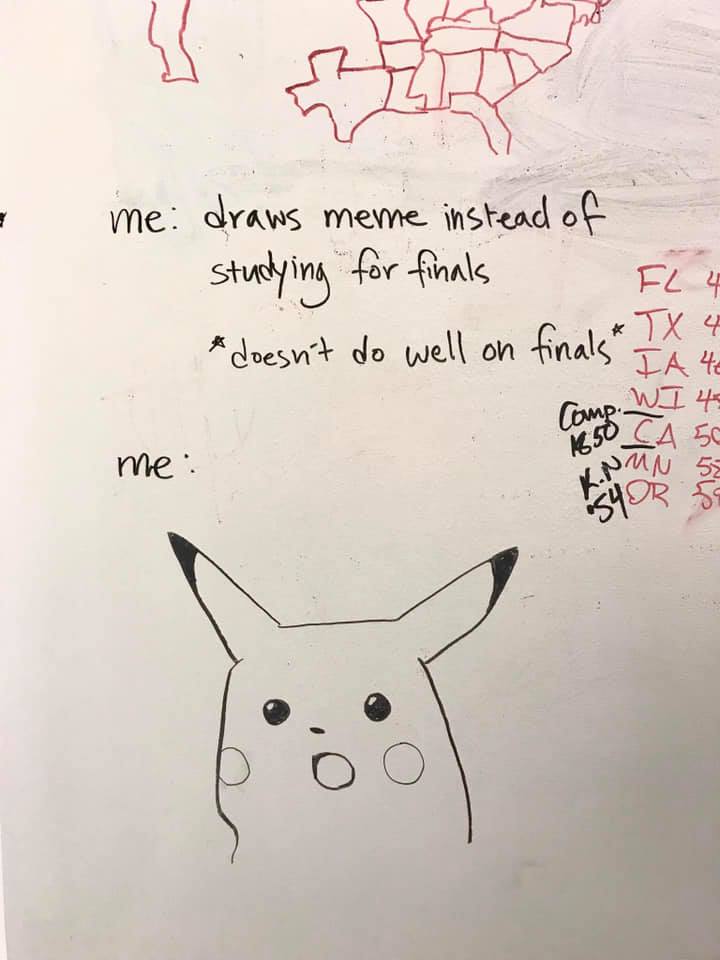 me: draws meme instead of
studying for finals
*doesn't do well on finals*
me:
FL 4
TX 4
IA 46
WI 45
Comp.
1850
CA 50
K.N
MN 58
.54
OR 59